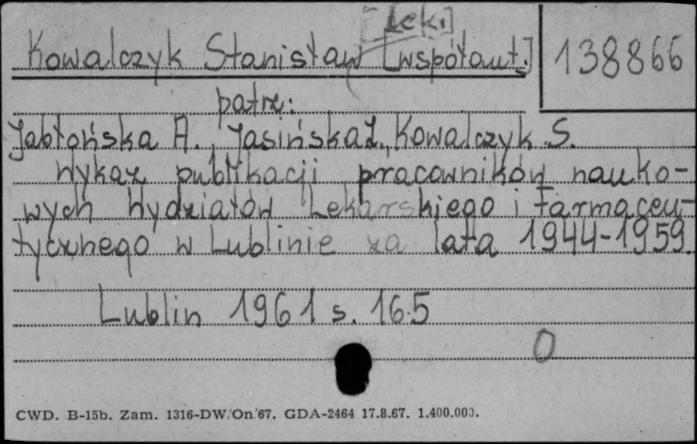 [lek.]
Kowalczyk Stanisław [współaut.]
138866
patrz:
Jabłońska A., Jasińska Z., Kowalczyk S.
Wykaz publikacji pracowników nauko-
wych Wydziałów Lekarskiego i Farmaceu-
tycznego w Lublinie za lata 1944-1959.
Lublin 1961 s. 165
O
CWD. B-15b. Zam. 1316-DW/On/67. GDA-2464 17.8.67. 1.400.000.